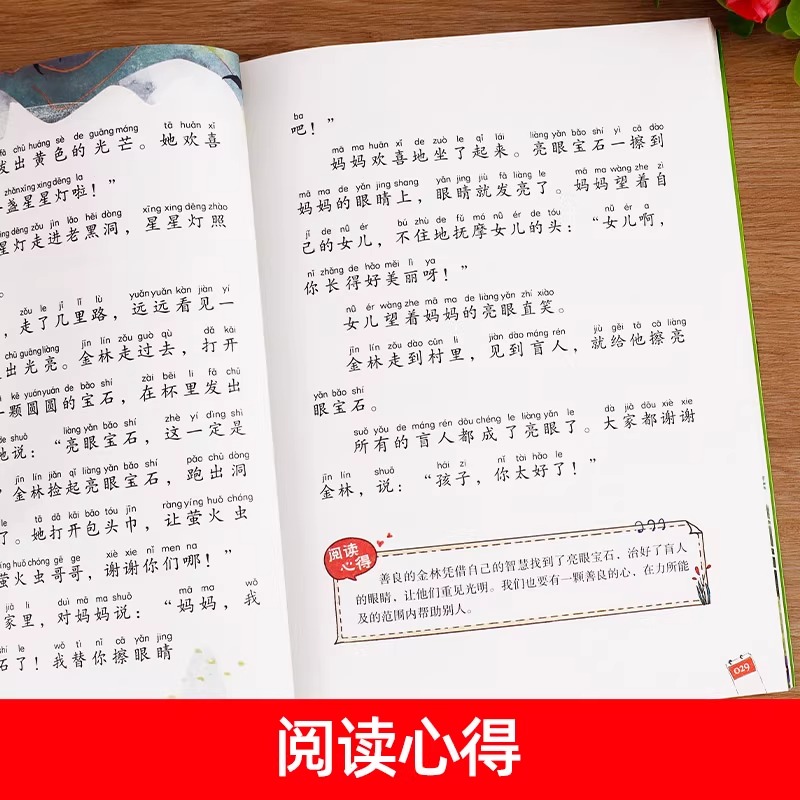 fā chū huáng sè de guāng máng tā huān xǐ
发出黄色的光芒。她欢喜
zhǎn xīng xing dēng la
盏星星灯啦！”
dēng zǒu jìn lǎo hēi dòng xīng xing dēng zhào
星灯走进老黑洞，星星灯照
。
zǒu le jǐ lǐ lù yuǎn yuǎn kàn jiàn yí
，走了几里路，远远看见一
chū guāng liàng jīn lín zǒu guò qù dǎ kāi
出光亮。金林走过去，打开
kē yuán yuán de bǎo shí zài bēi lǐ fā chū
一颗圆圆的宝石，在杯里发出
de shuō liàng yǎn bǎo shí zhè yí dìng shì
地说：“亮眼宝石，这一定是
jīn lín jiǎn qǐ liàng yǎn bǎo shí pǎo chū dòng
金林捡起亮眼宝石，跑出洞
le tā dǎ kāi bāo tóu jīn ràng yíng huǒ chóng
了。她打开包头巾，让萤火虫
yíng huǒ chóng gē ge xiè xie nǐ men na
萤火虫哥哥，谢谢你们哪！”
jiā lǐ duì mā ma shuō mā ma wǒ
家里，对妈妈说：“妈妈，我
shí le wǒ tì nǐ cā yǎn jing
石了！我替你擦眼睛
ba
吧！”
mā ma huān xǐ de zuò le qǐ lái liàng yǎn bǎo shí yì cā dào
妈妈欢喜地坐了起来。亮眼宝石一擦到
mā ma de yǎn jing shang yǎn jing jiù fā liàng le mā ma wàng zhe zì
妈妈的眼睛上，眼睛就发亮了。妈妈望着自
jǐ de nǚ ér bú zhù de fǔ mó nǚ ér de tóu nǚ ér a
己的女儿，不住地抚摩女儿的头：“女儿啊，
nǐ zhǎng de hǎo měi lì ya
你长得好美丽呀！”
nǚ ér wàng zhe mā ma de liàng yǎn zhí xiào
女儿望着妈妈的亮眼直笑。
jīn lín zǒu dào cūn lǐ jiàn dào máng rén jiù gěi tā cā liàng
金林走到村里，见到盲人，就给他擦亮
yǎn bǎo shí
眼宝石。
suǒ yǒu de máng rén dōu chéng le liàng yǎn le dà jiā dōu xiè xie
所有的盲人都成了亮眼了。大家都谢谢
jīn lín shuō hái zi nǐ tài hǎo le
金林，说：“孩子，你太好了！”
阅读
心得
善良的金林凭借自己的智慧找到了亮眼宝石，治好了盲人
的眼睛，让他们重见光明。我们也要有一颗善良的心，在力所能
及的范围内帮助别人。
029
阅读心得